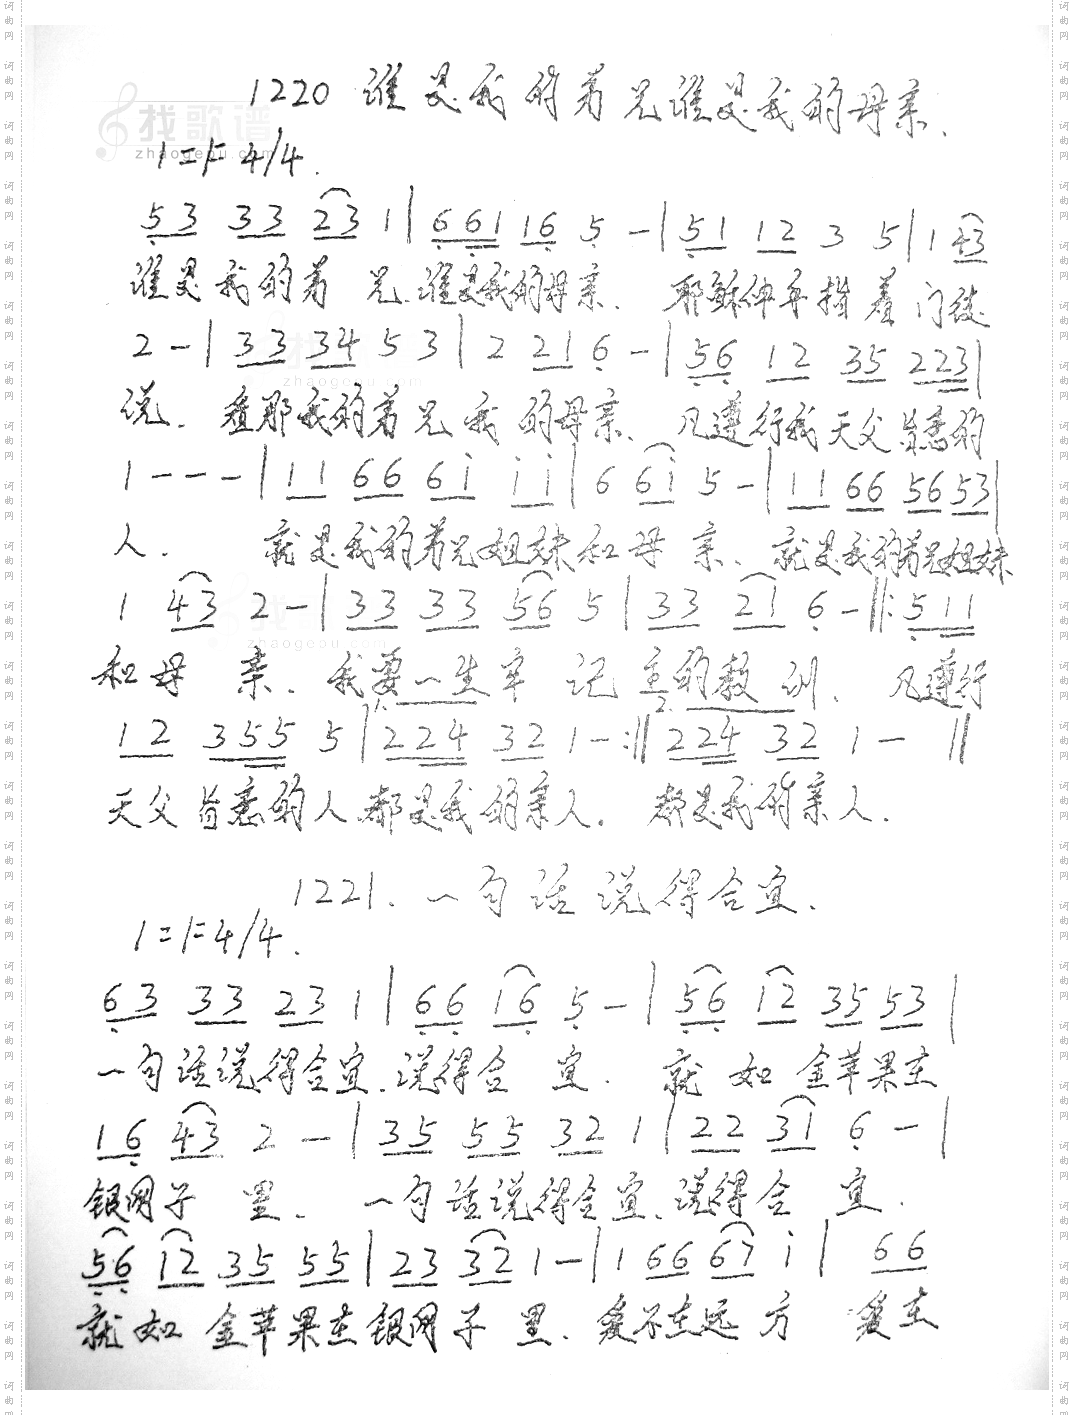 1220 谁是我的弟兄谁是我的母亲.
找歌谱
zhaogepu.com
1=F 4/4.
53 33 23 1 | 661 16 5 - | 51 12 3 5 | 1 43
谁是我的弟 兄.谁是我的母亲. 耶稣伸手指着 门徒
2 - | 33 34 5 3 | 2 21 6 - | 56 12 35 223 |
说. 看那我的弟兄 我 的母亲. 凡遵行我天父旨意的
1 - - - | 11 66 6i ii | 6 6i 5 - | 11 66 56 53 |
人. 就是我的弟兄姐妹和母 亲. 就是我的弟兄姐妹
1 43 2 - | 33 33 56 5 | 33 21 6 - ‖: 511
和母 亲. 我要一生牢 记 主的教 训. 凡遵行
12 355 5 | 1. 224 32 1 - :‖ 2. 224 32 1 - ‖
天父旨意的人.都是我的亲人. 都是我的亲人.
1221. 一句话说得合宜.
1=F 4/4.
63 33 23 1 | 66 16 5 - | 56 12 35 53 |
一句话说得合宜.说得合 宜. 就 如 金苹果在
16 43 2 - | 35 55 32 1 | 22 31 6 - |
银网子 里. 一句话说得合宜.说得合 宜.
56 12 35 55 | 23 32 1 - | 1 66 67 i | 66
就如 金苹果在银网子 里. 爱不在远 方 爱在